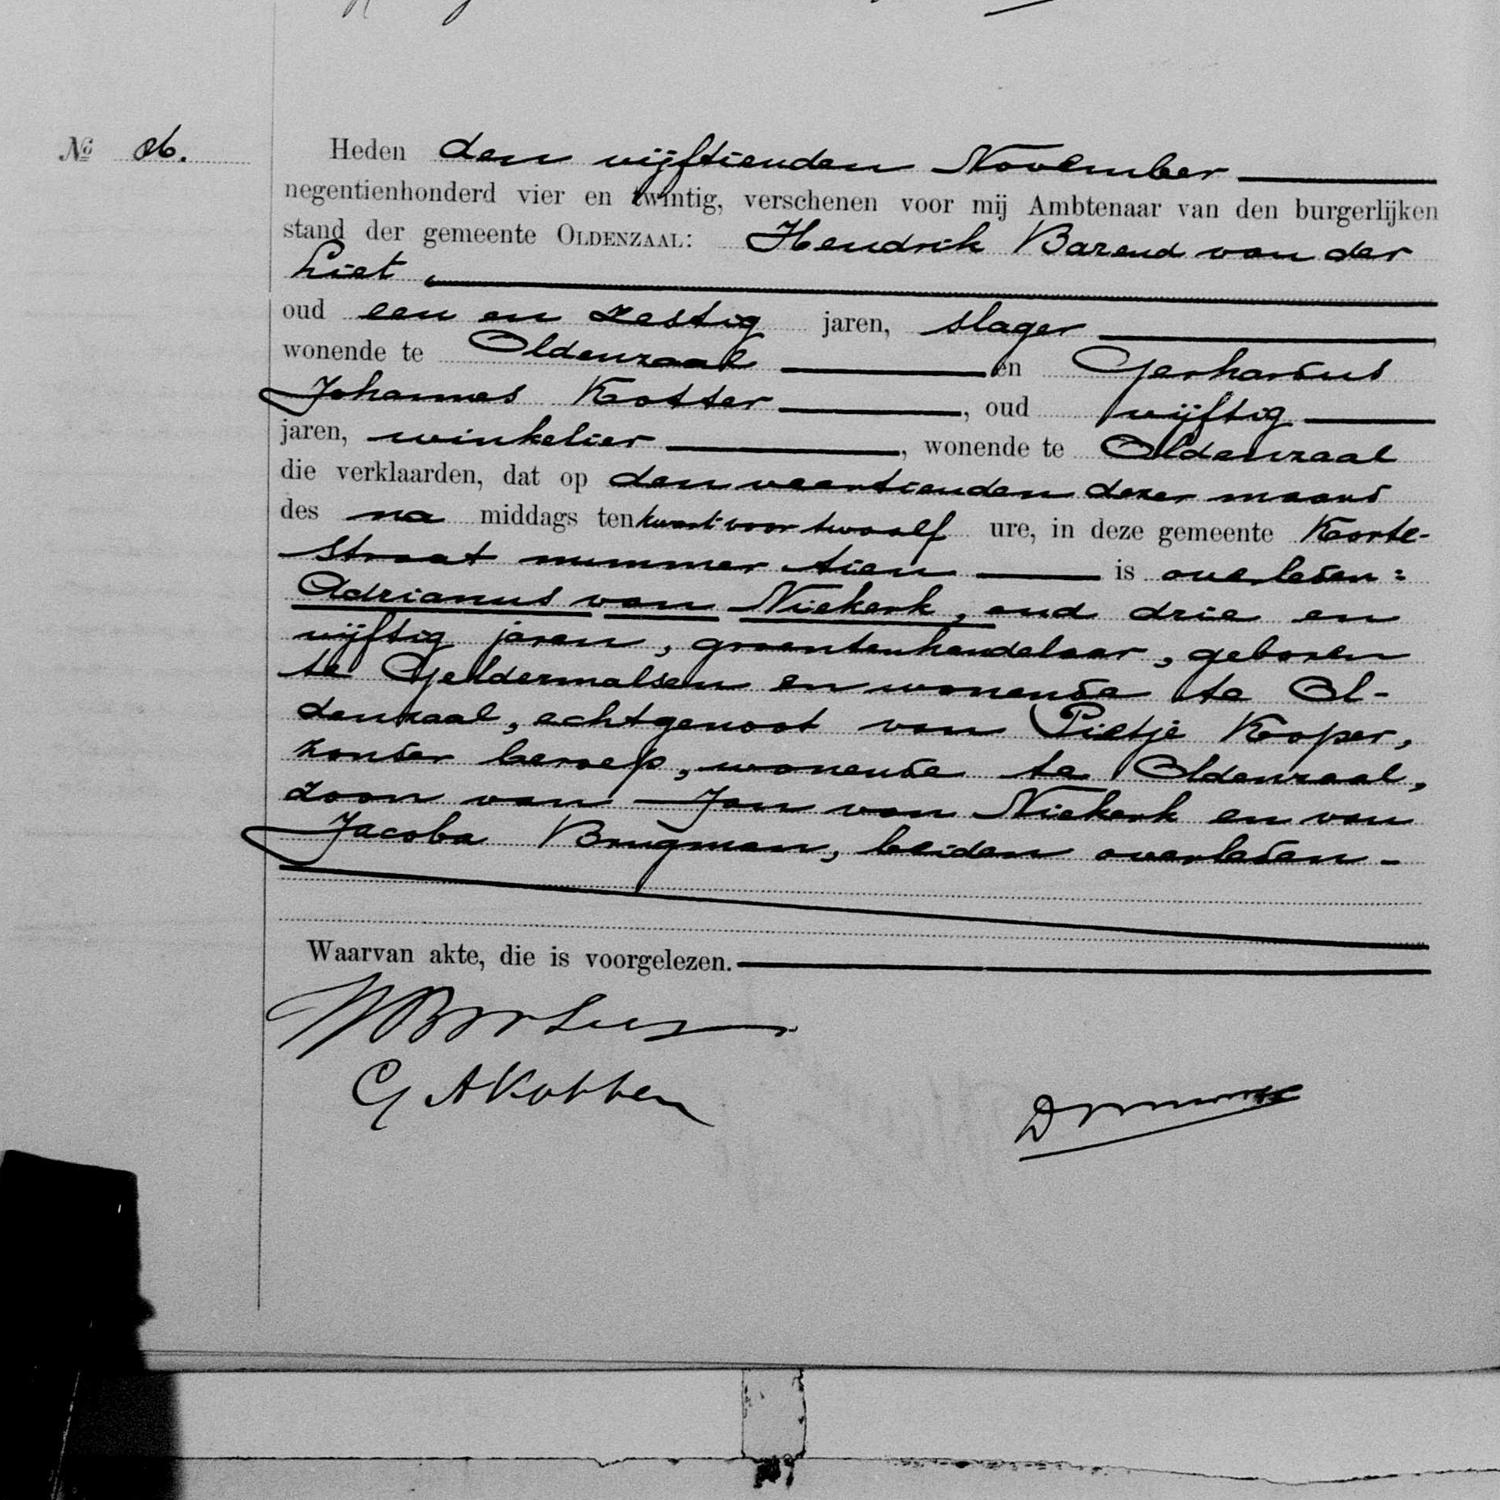 Nº 86.
Heden den vijftienden November
negentienhonderd vier en twintig, verschenen voor mij Ambtenaar van den burgerlijken
stand der gemeente OLDENZAAL: Hendrik Barend van der
Liet,
oud een en zestig jaren, slager,
wonende te Oldenzaal en Gerhardus
Johannes Kotter, oud vijftig
jaren, winkelier, wonende te Oldenzaal
die verklaarden, dat op den veertienden dezer maand
des na middags ten kwart voor twaalf ure, in deze gemeente Korte-
straat nummer tien is overleden:
Adrianus van Niekerk, oud drie en
vijftig jaren, groentenhandelaar, geboren
te Geldermalsen en wonende te Ol-
denzaal, echtgenoot van Pietje Kooper,
zonder beroep, wonende te Oldenzaal,
zoon van Jan van Niekerk en van
Jacoba Brugman, beiden overleden -
Waarvan akte, die is voorgelezen.